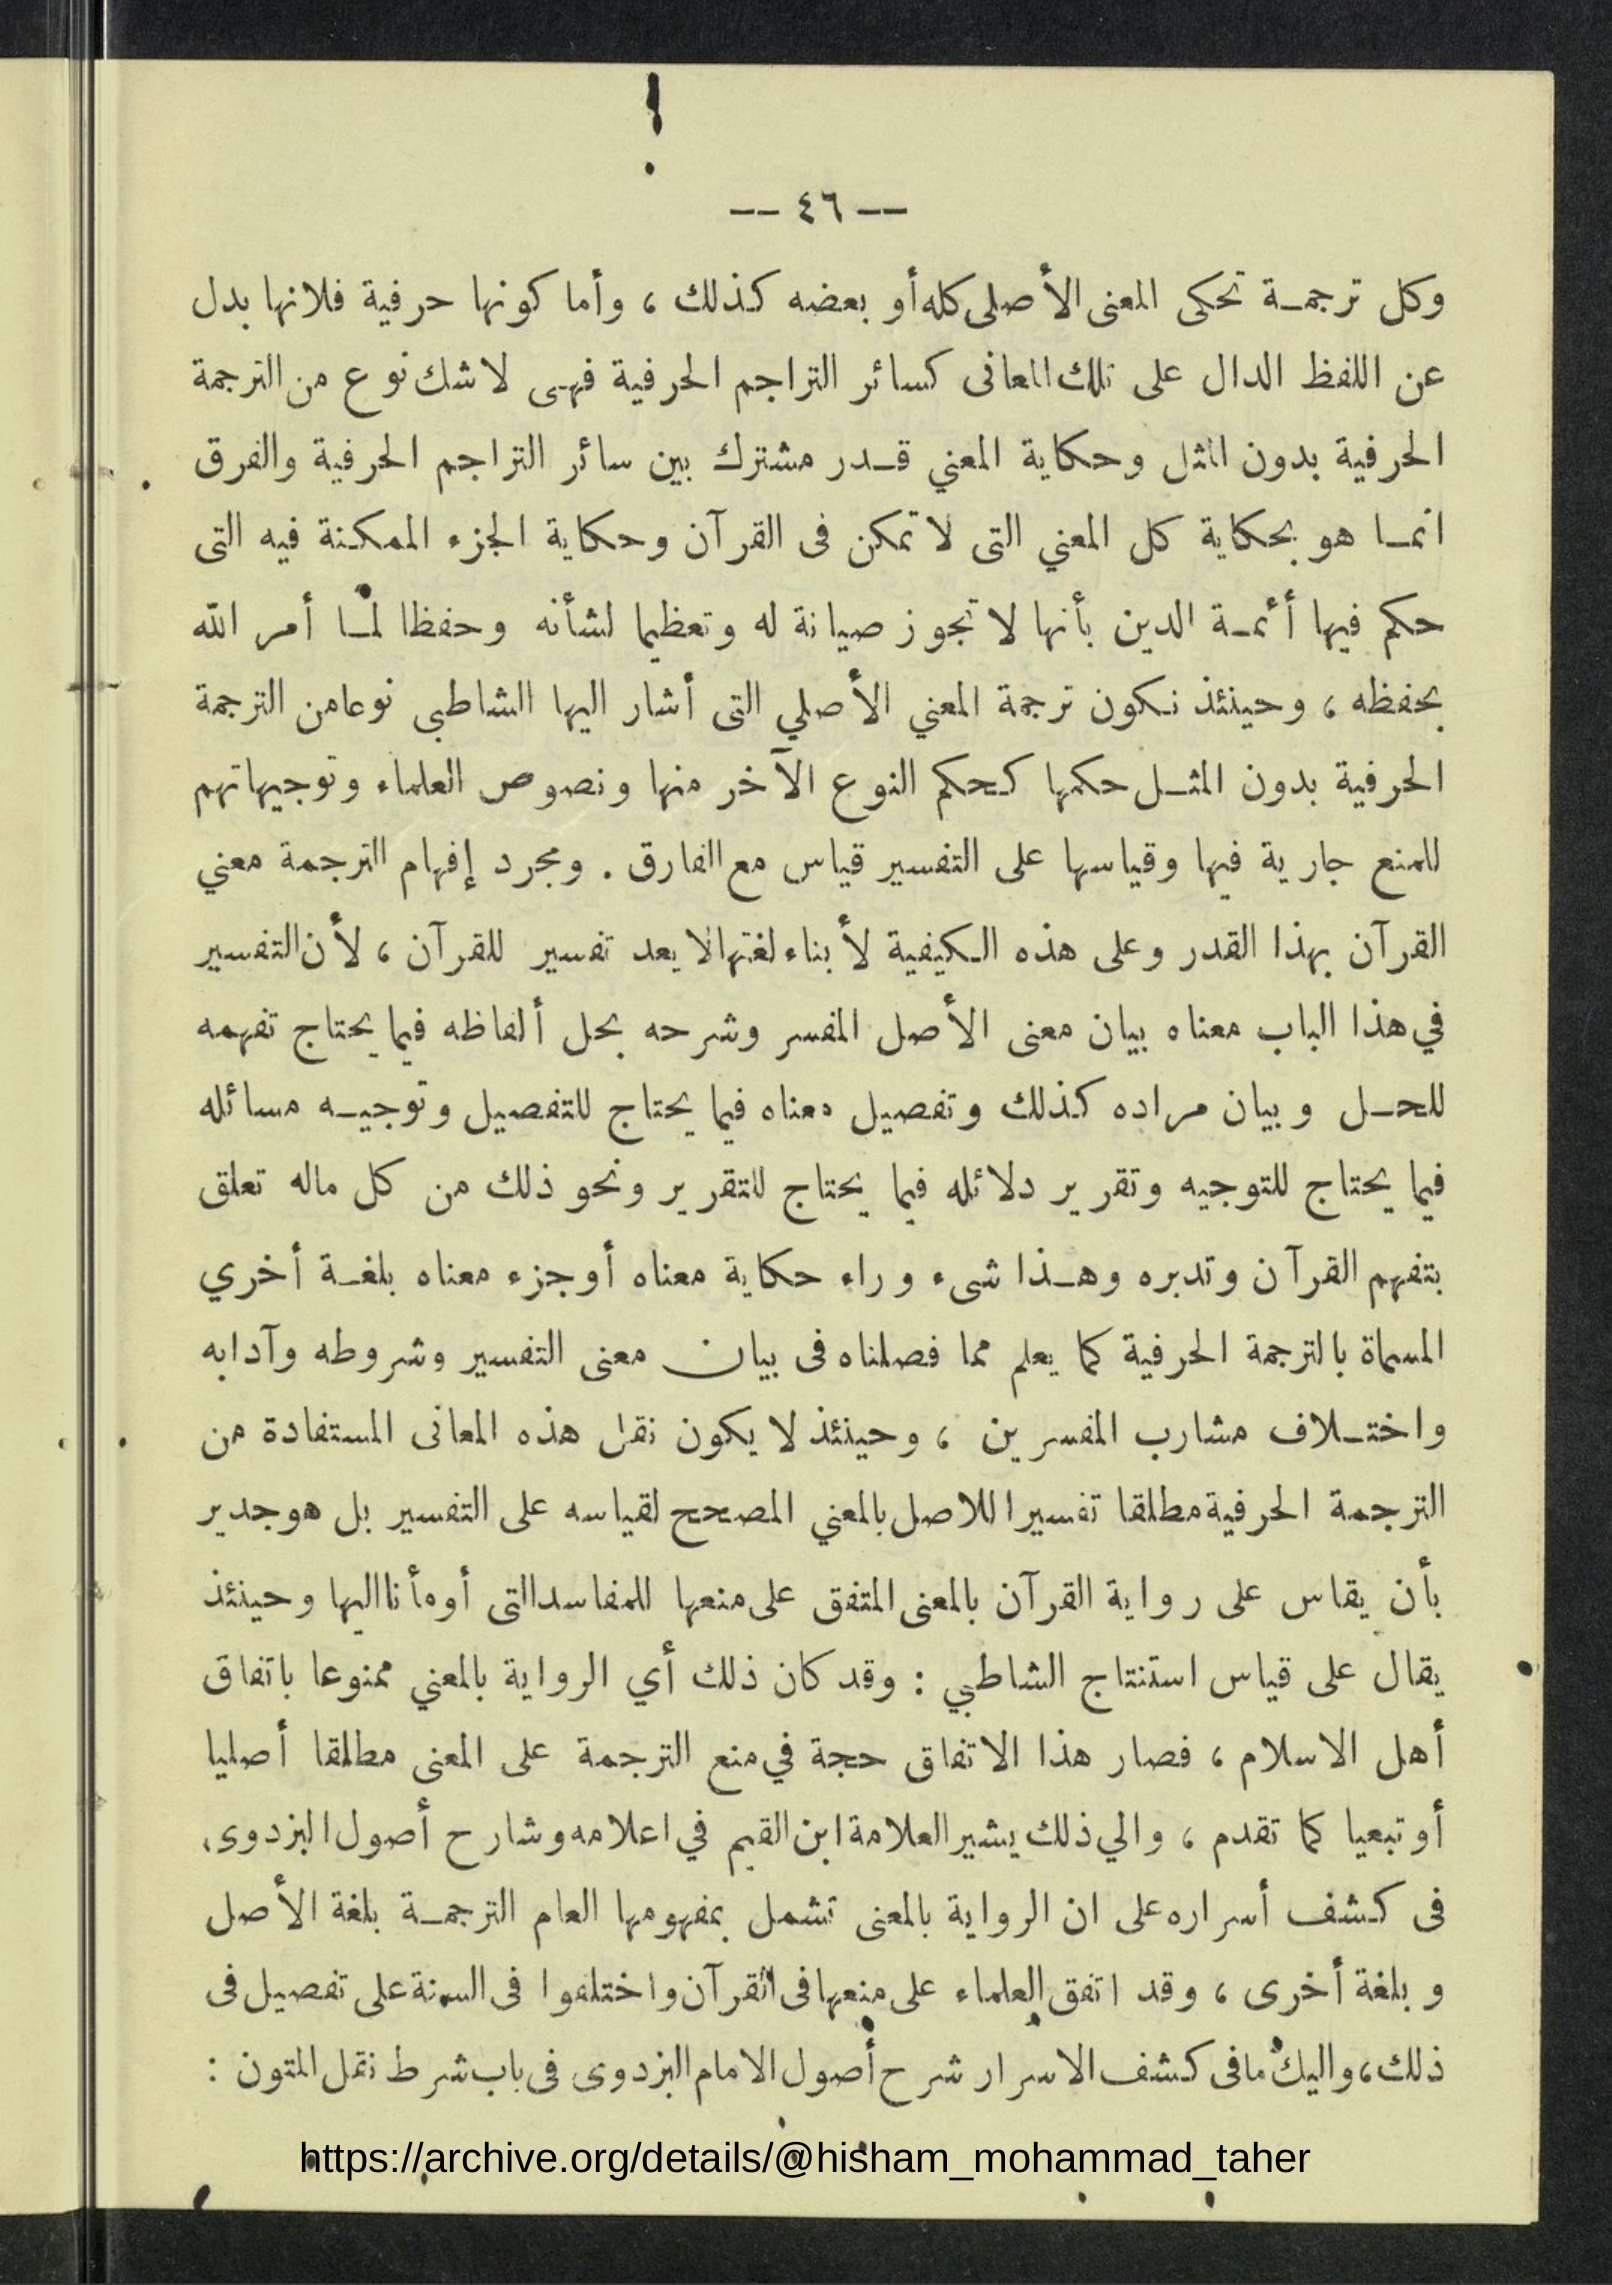 -- ٤٦ --
وكل ترجمة تحكى المعنى الأصلى كله أو بعضه كذلك ، وأما كونها حرفية فلانها بدل
عن اللفظ الدال على تلك المعانى كسائر التراجم الحرفية فهى لاشك نوع من الترجمة
الحرفية بدون المثل وحكاية المعني قدر مشترك بين سائر التراجم الحرفية والفرق
انما هو بحكاية كل المعني التى لا تمكن فى القرآن وحكاية الجزء الممكنة فيه التى
حكم فيها أئمة الدين بأنها لا تجوز صيانة له وتعظيما لشأنه وحفظا لما أمر الله
بحفظه ، وحينئذ نكون ترجمة المعني الأصلي التى أشار اليها الشاطبى نوعا من الترجمة
الحرفية بدون المثل حكمها كحكم النوع الآخر منها ونصوص العلماء وتوجيهاتهم
للمنع جارية فيها وقياسها على التفسير قياس مع الفارق . ومجرد إفهام الترجمة معني
القرآن بهذا القدر وعلى هذه الكيفية لأبناء لغتها لا يعد تفسير للقرآن ، لأن التفسير
في هذا الباب معناه بيان معنى الأصل المفسر وشرحه بحل ألفاظه فيما يحتاج تفهمه
للحل وبيان مراده كذلك وتفصيل معناه فيما يحتاج للتفصيل وتوجيه مسائله
فيما يحتاج للتوجيه وتقرير دلائله فيما يحتاج للتقرير ونحو ذلك من كل ماله تعلق
بتفهم القرآن وتدبره وهذا شىء وراء حكاية معناه أو جزء معناه بلغة أخري
المسماة بالترجمة الحرفية كما يعلم مما فصلناه فى بيان معنى التفسير وشروطه وآدابه
واختلاف مشارب المفسرين ، وحينئذ لا يكون نقل هذه المعانى المستفادة من
الترجمة الحرفية مطلقا تفسيرا للاصل بالمعني المصحح لقياسه على التفسير بل هو جدير
بأن يقاس على رواية القرآن بالمعنى المتفق على منعها للمفاسد التى أومأنا اليها وحينئذ
يقال على قياس استنتاج الشاطبي : وقد كان ذلك أي الرواية بالمعني ممنوعا باتفاق
أهل الاسلام ، فصار هذا الاتفاق حجة في منع الترجمة على المعنى مطلقا أصليا
أو تبعيا كما تقدم ، والي ذلك يشير العلامة ابن القيم في اعلامه وشارح أصول البزدوى،
فى كشف أسراره على ان الرواية بالمعنى تشمل بمفهومها العام الترجمة بلغة الأصل
وبلغة أخرى ، وقد اتفق العلماء على منعها فى القرآن واختلفوا فى السنة على تفصيل فى
ذلك، واليك مافى كشف الاسرار شرح أصول الامام البزدوى فى باب شرط نقل المتون :
https://archive.org/details/@hisham_mohammad_taher